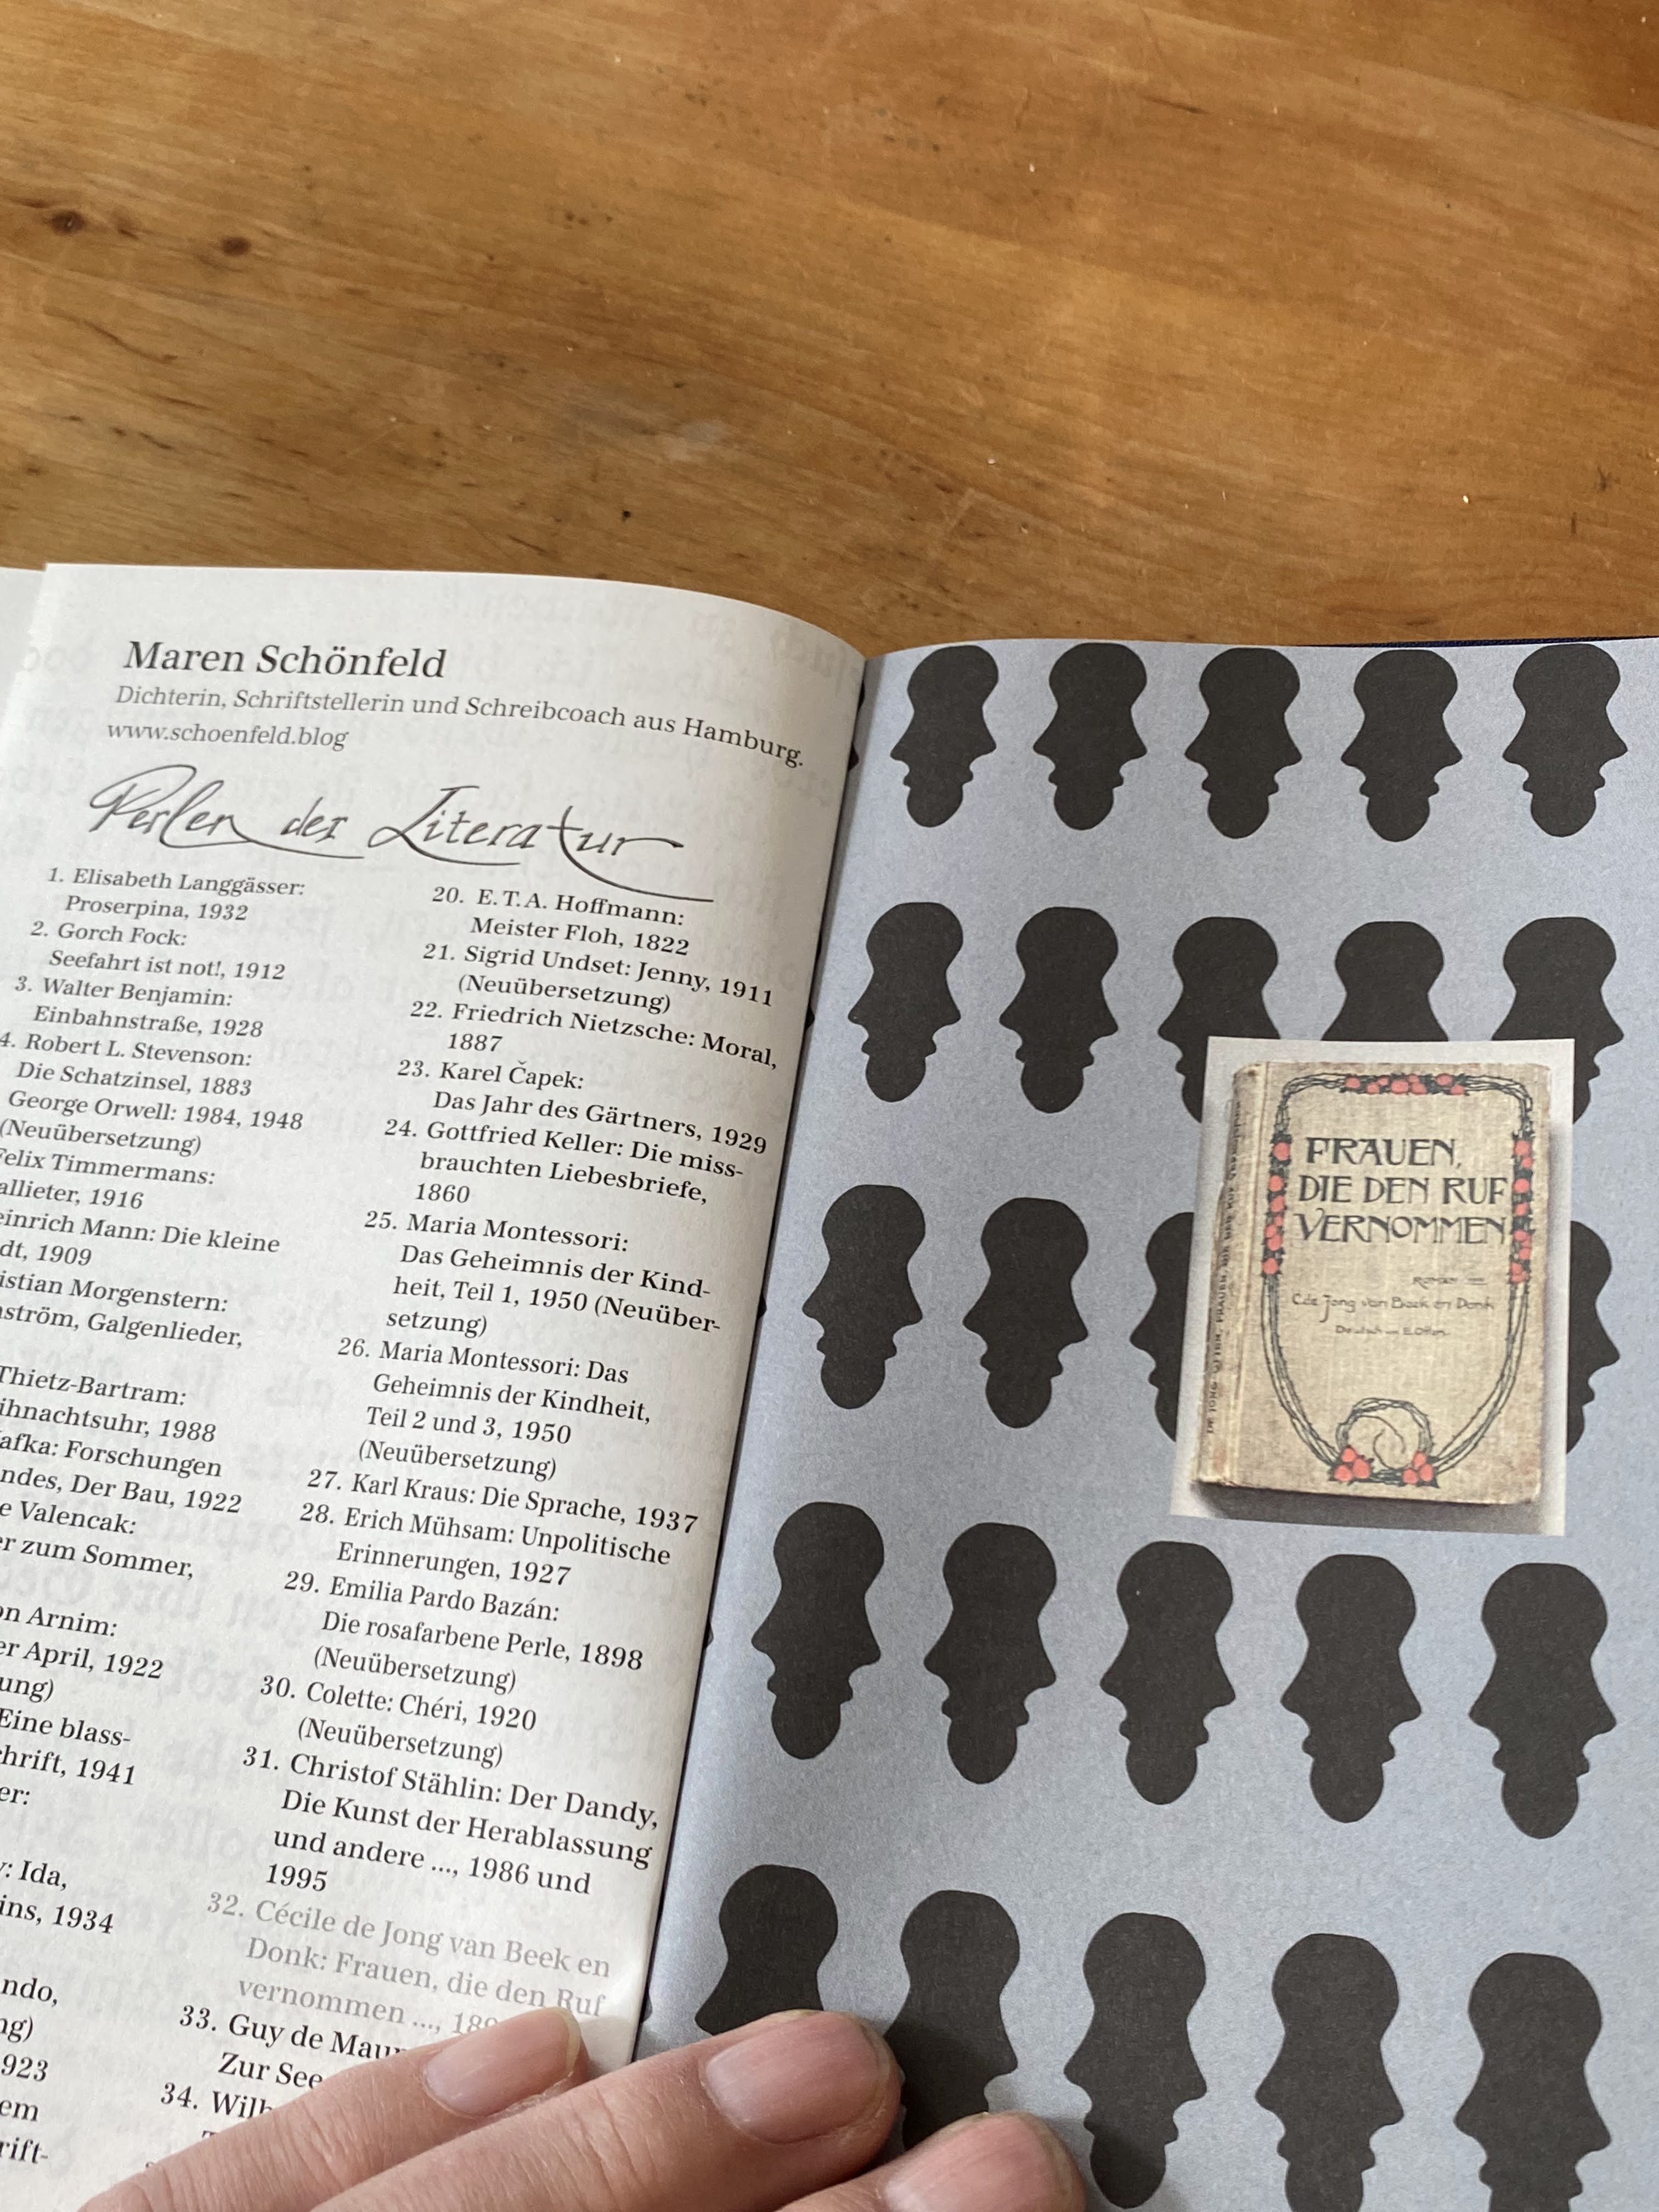 Maren Schönfeld
Dichterin, Schriftstellerin und Schreibcoach aus Hamburg.
www.schoenfeld.blog
Perlen der Literatur
1. Elisabeth Langgässer:
Proserpina, 1932
2. Gorch Fock:
Seefahrt ist not!, 1912
3. Walter Benjamin:
Einbahnstraße, 1928
4. Robert L. Stevenson:
Die Schatzinsel, 1883
George Orwell: 1984, 1948
(Neuübersetzung)
Felix Timmermans:
allieter, 1916
einrich Mann: Die kleine
dt, 1909
istian Morgenstern:
ström, Galgenlieder,
Thietz-Bartram:
ihnachtsuhr, 1988
afka: Forschungen
ndes, Der Bau, 1922
e Valencak:
er zum Sommer,
on Arnim:
er April, 1922
ung)
Eine blass-
hrift, 1941
er:
: Ida,
ins, 1934
ndo,
ng)
923
em
rift-
20. E.T.A. Hoffmann:
Meister Floh, 1822
21. Sigrid Undset: Jenny, 1911
(Neuübersetzung)
22. Friedrich Nietzsche: Moral,
1887
23. Karel Čapek:
Das Jahr des Gärtners, 1929
24. Gottfried Keller: Die miss-
brauchten Liebesbriefe,
1860
25. Maria Montessori:
Das Geheimnis der Kind-
heit, Teil 1, 1950 (Neuüber-
setzung)
26. Maria Montessori: Das
Geheimnis der Kindheit,
Teil 2 und 3, 1950
(Neuübersetzung)
27. Karl Kraus: Die Sprache, 1937
28. Erich Mühsam: Unpolitische
Erinnerungen, 1927
29. Emilia Pardo Bazán:
Die rosafarbene Perle, 1898
(Neuübersetzung)
30. Colette: Chéri, 1920
(Neuübersetzung)
31. Christof Stählin: Der Dandy,
Die Kunst der Herablassung
und andere ..., 1986 und
1995
32. Cécile de Jong van Beek en
Donk: Frauen, die den Ruf
vernommen ..., 189
33. Guy de Mau
Zur See
34. Wilh
FRAUEN,
DIE DEN RUF
VERNOMMEN
ROMAN
C. de Jong van Beek en Donk
Deutsch von E. Otten